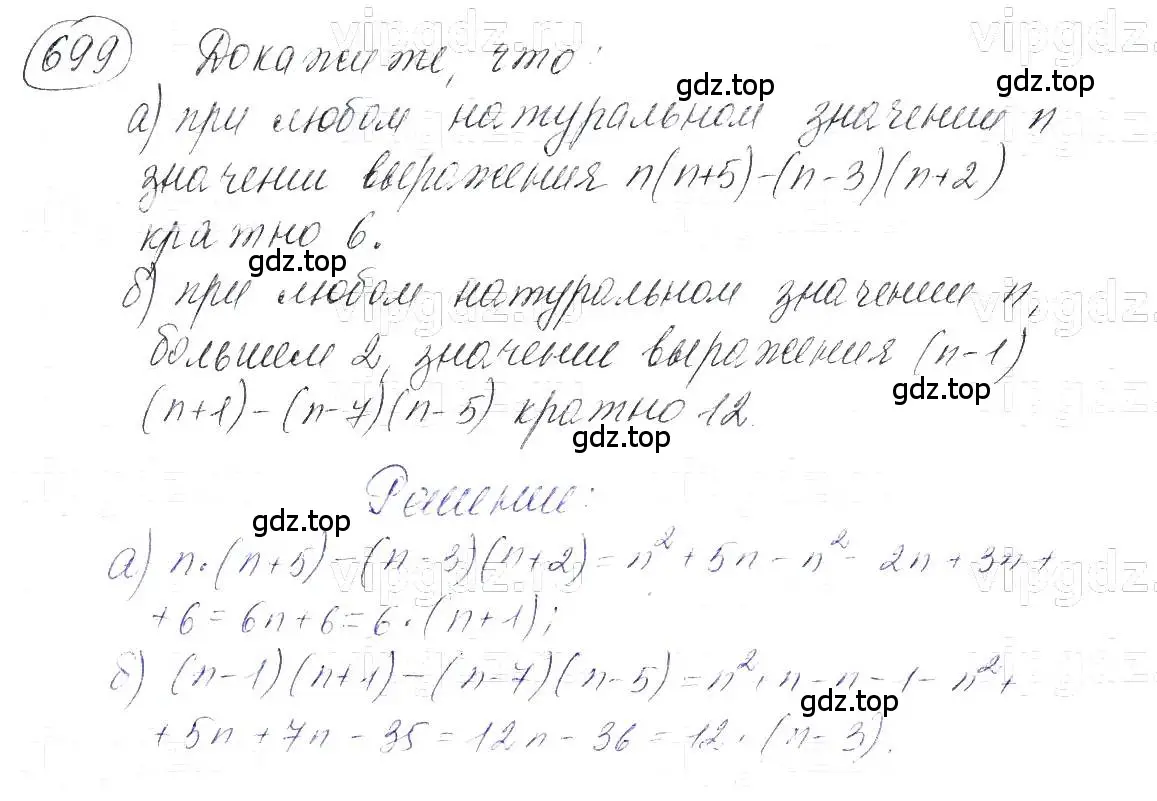 699 Докажите, что:
а) при любом натуральном значении n
значении выражения n(n+5)-(n-3)(n+2)
кратно 6.
б) при любом натуральном значении n,
большем 2, значение выражения (n-1)
(n+1)-(n-7)(n-5) кратно 12.
Решение:
а) n·(n+5)-(n-3)(n+2)=n²+5n-n²-2n+3n+
+6=6n+6=6·(n+1);
б) (n-1)(n+1)-(n-7)(n-5)=n²+n-n-1-n²+
+5n+7n-35=12n-36=12·(n-3).
gdz.top
gdz.top
gdz.top
gdz.top
gdz.top
gdz.top
gdz.top
vipgdz.ru
vipgdz.ru
vipgdz.ru
vipgdz.ru